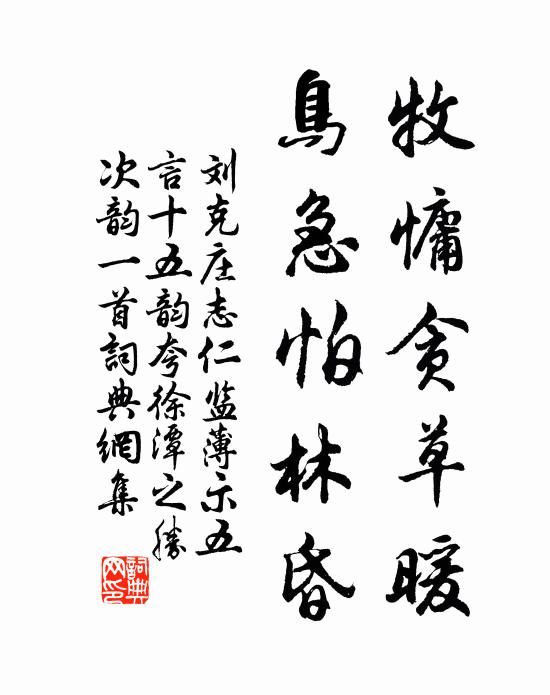 牧慵贪草暖
鳥急怕林昏
刘克庄志仁监薄示五
言十五韵夸徐潭之勝
次韵一首詞典網集
詞典
网印